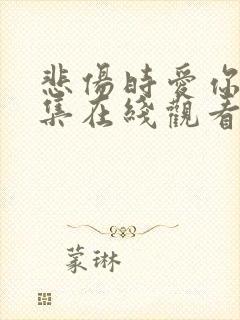 悲傷時愛你
集在綫觀看
蒙琳